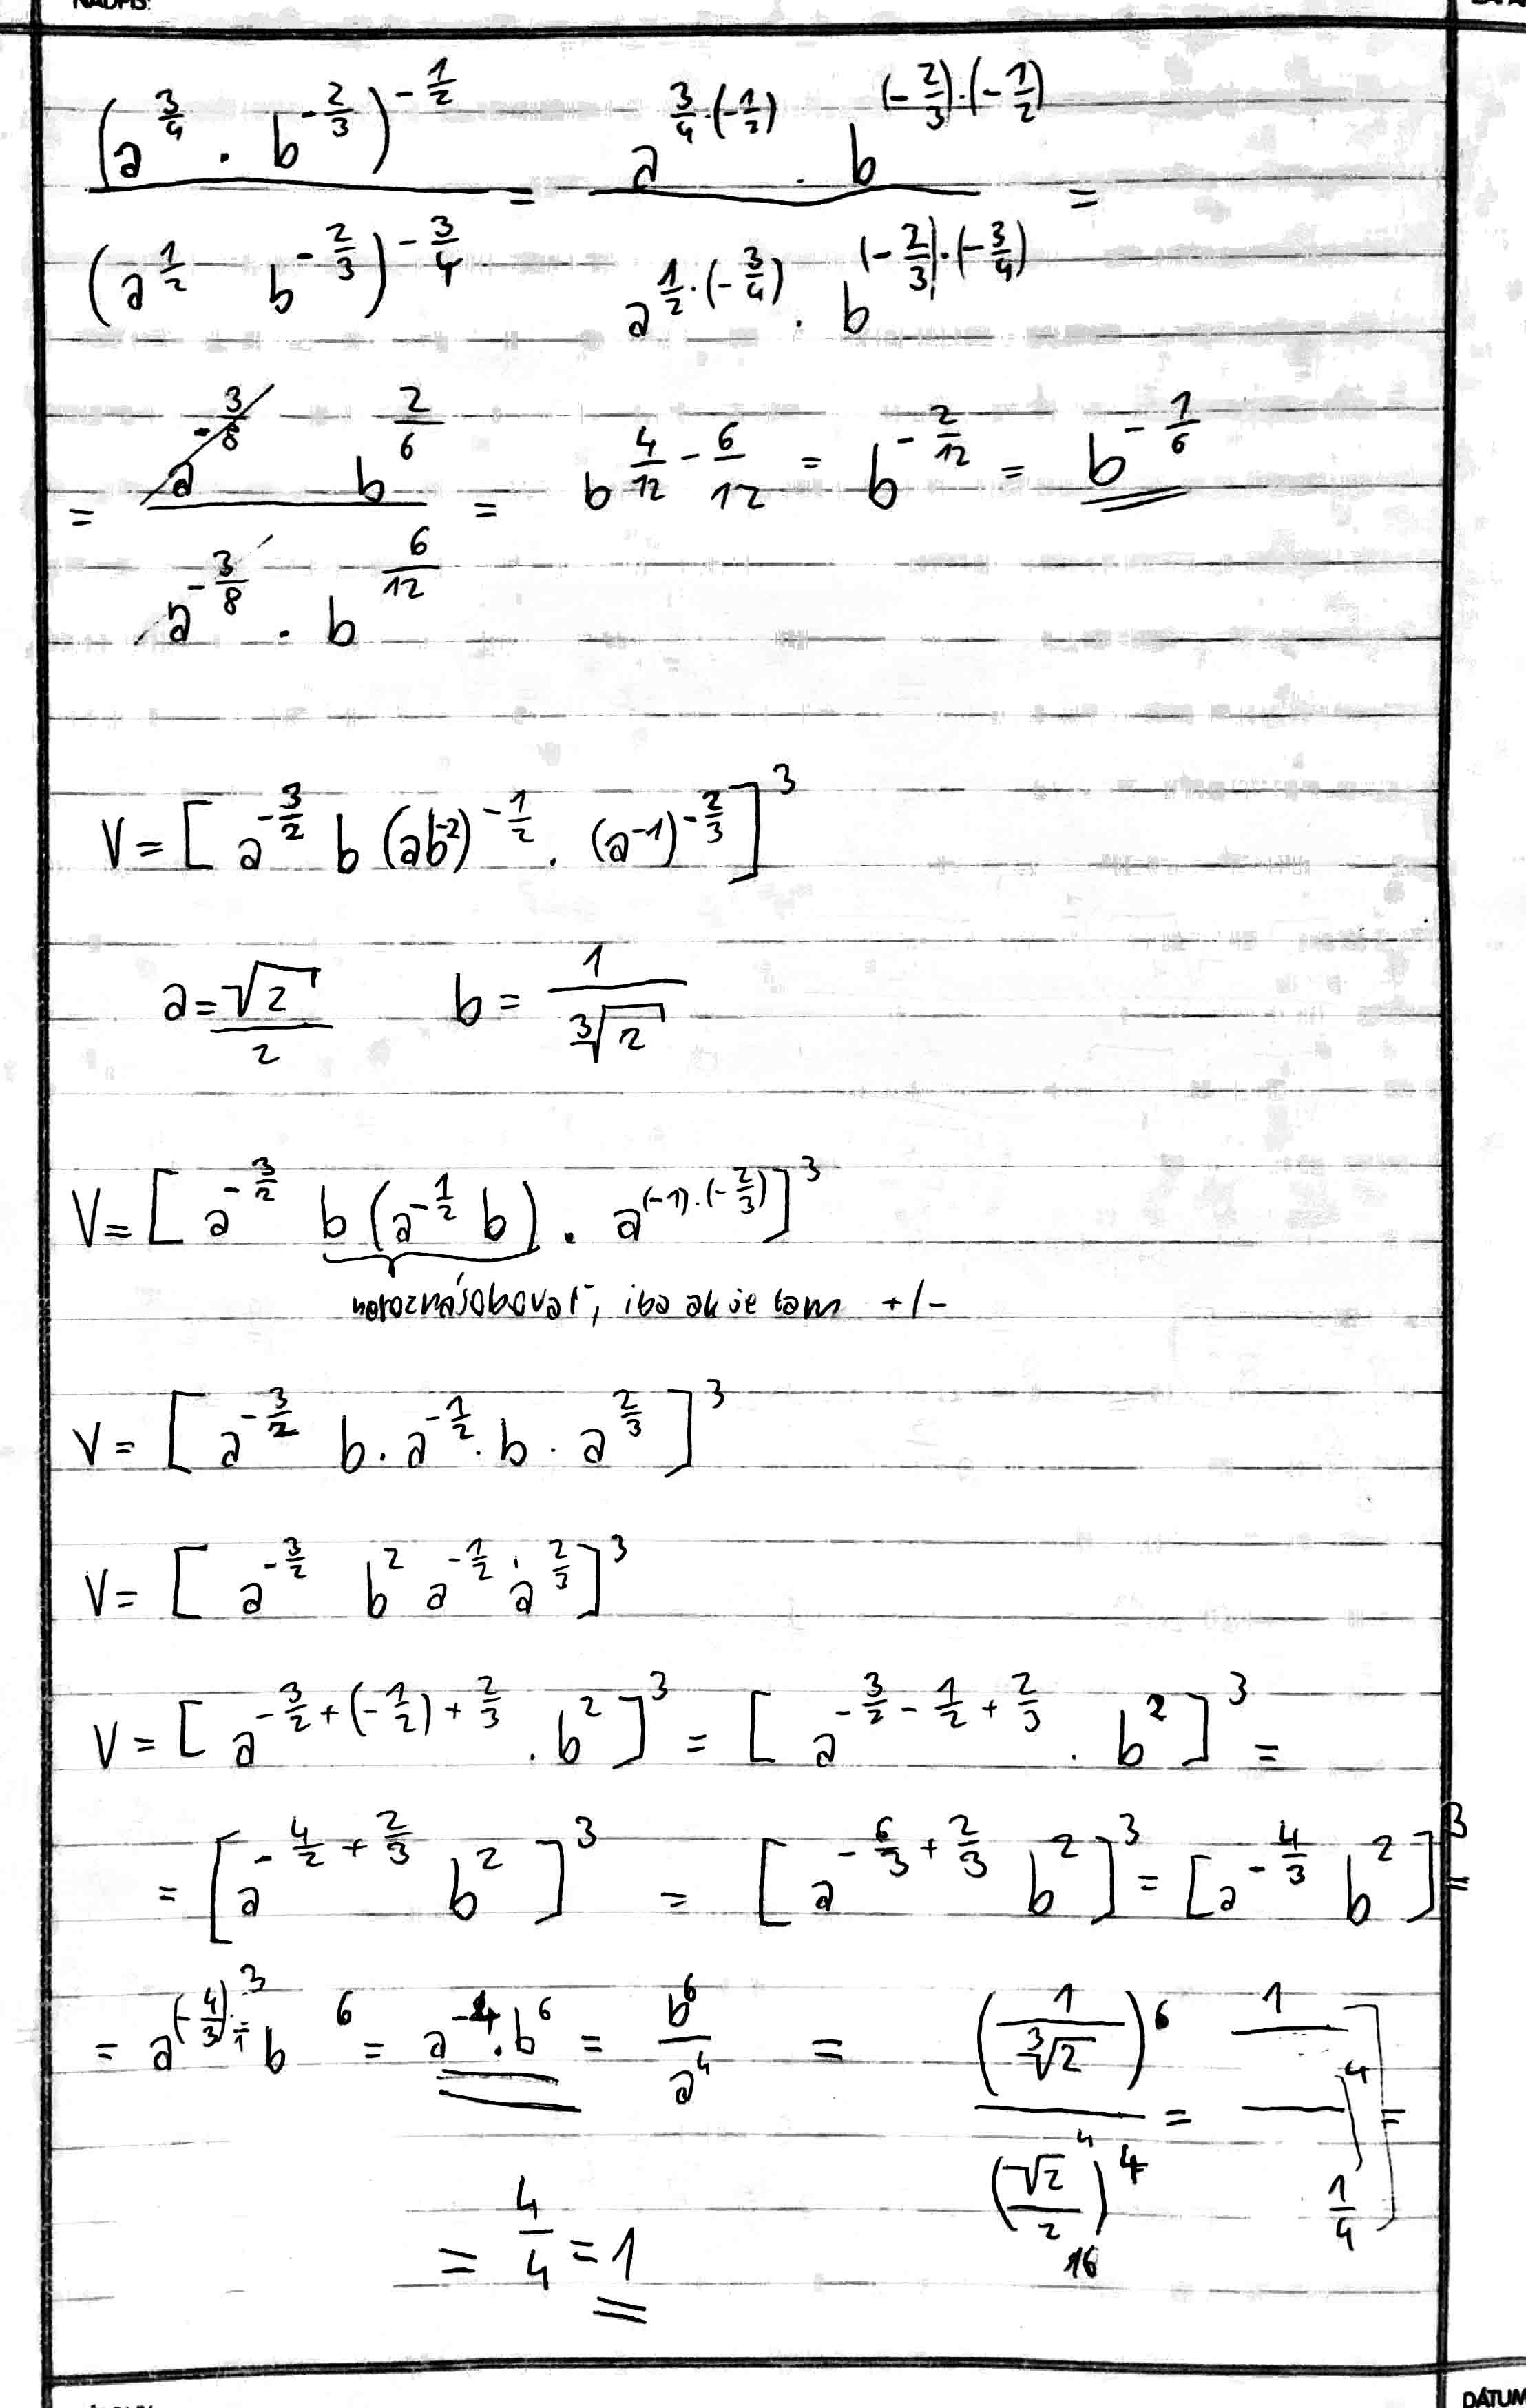 NADPIS:
(a^(3/4) · b^(-2/3))^(-1/2) / (a^(1/2) b^(-2/3))^(-3/4) = a^(3/4·(-1/2)) · b^((-2/3)·(-1/2)) / a^(1/2·(-3/4)) · b^((-2/3)·(-3/4)) =
= a^(-3/8) b^(2/6) / a^(-3/8) · b^(6/12) = b^(4/12 - 6/12) = b^(-2/12) = b^(-1/6)
V = [a^(-3/2) b (ab^(-2))^(-1/2) · (a^(-1))^(-2/3)]^3
a = √2/2 b = 1/∛2
V = [a^(-3/2) b (a^(-1/2) b) · a^((-1)·(-2/3))]^3
neroznásobovať, iba ak je tam +/-
V = [a^(-3/2) b · a^(-1/2) · b · a^(2/3)]^3
V = [a^(-3/2) b^2 a^(-1/2) · a^(2/3)]^3
V = [a^(-3/2+(-1/2)+2/3) · b^2]^3 = [a^(-3/2-1/2+2/3) · b^2]^3 =
= [a^(-4/2+2/3) b^2]^3 = [a^(-6/3+2/3) b^2]^3 = [a^(-4/3) b^2]^3 =
= a^((-4/3)·3/1) b^6 = a^(-4) · b^6 = b^6/a^4 = (1/∛2)^6 / (√2/2)^4 = 1 / 4 / 1/4 =
4 16
= 4/4 = 1
DÁTUM